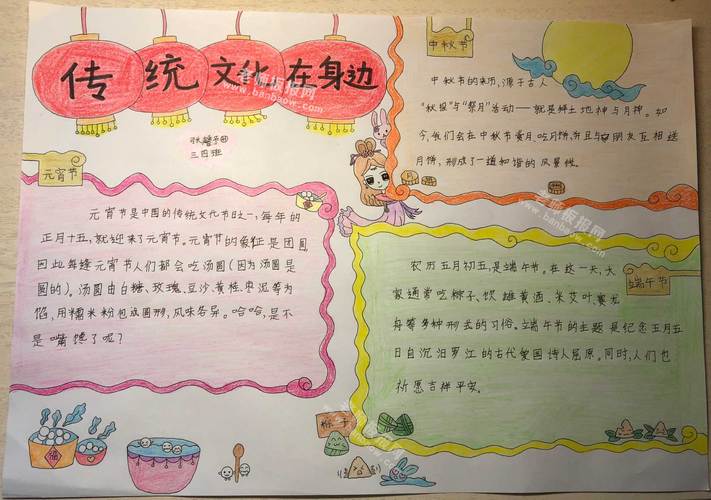 传统文化在身边
三四班
元宵节
元宵节是中国的传统文化节日之一，每年的
正月十五，就迎来了元宵节。元宵节的象征是团圆
因此每逢元宵节人们都会吃汤圆（因为汤圆是
圆的）。汤圆由白糖、玫瑰、豆沙、黄桂、枣泥等为
馅，用糯米粉包成圆形，风味各异。哈哈，是不
是嘴馋了呢？
福
中秋节
中秋节的来历，源于古人
“秋报”与“祭月”活动——就是拜土地神与月神。如
今，我们会在中秋节赏月、吃月饼，并且与朋友互相送
月饼，形成了一道和谐的风景线。
端午节
农历五月初五，是端午节。在这一天，大
家通常吃粽子、饮雄黄酒、采艾叶、赛龙
舟等多种形式的习俗。端午节的主题是纪念五月五
日自沉汨罗江的古代爱国诗人屈原。同时，人们也
祈愿吉祥平安。
粽子
老师板报网
www.banbaow.com
老师板报网
www.banbaow.com
老师板报网
www.banbaow.com